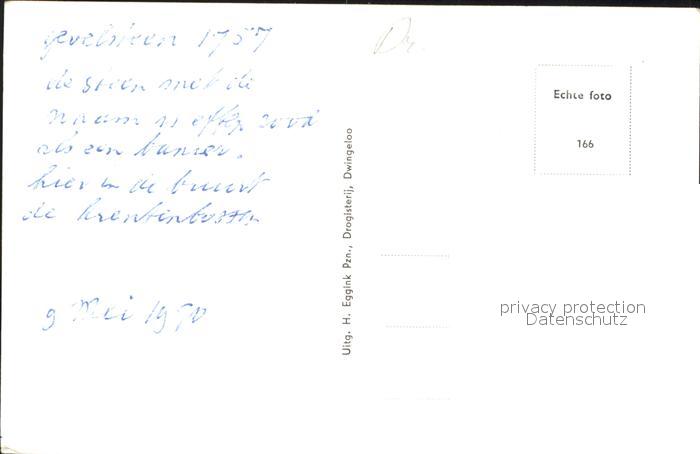 gevelsteen 1757
de steen met de
naam is effen rood
als een banier.
hier in de buurt
de krentenbossen
9 Mei 1970
Dr.
Uitg. H. Eggink Pzn., Drogisterij, Dwingeloo
Echte foto
166
privacy protection
Datenschutz